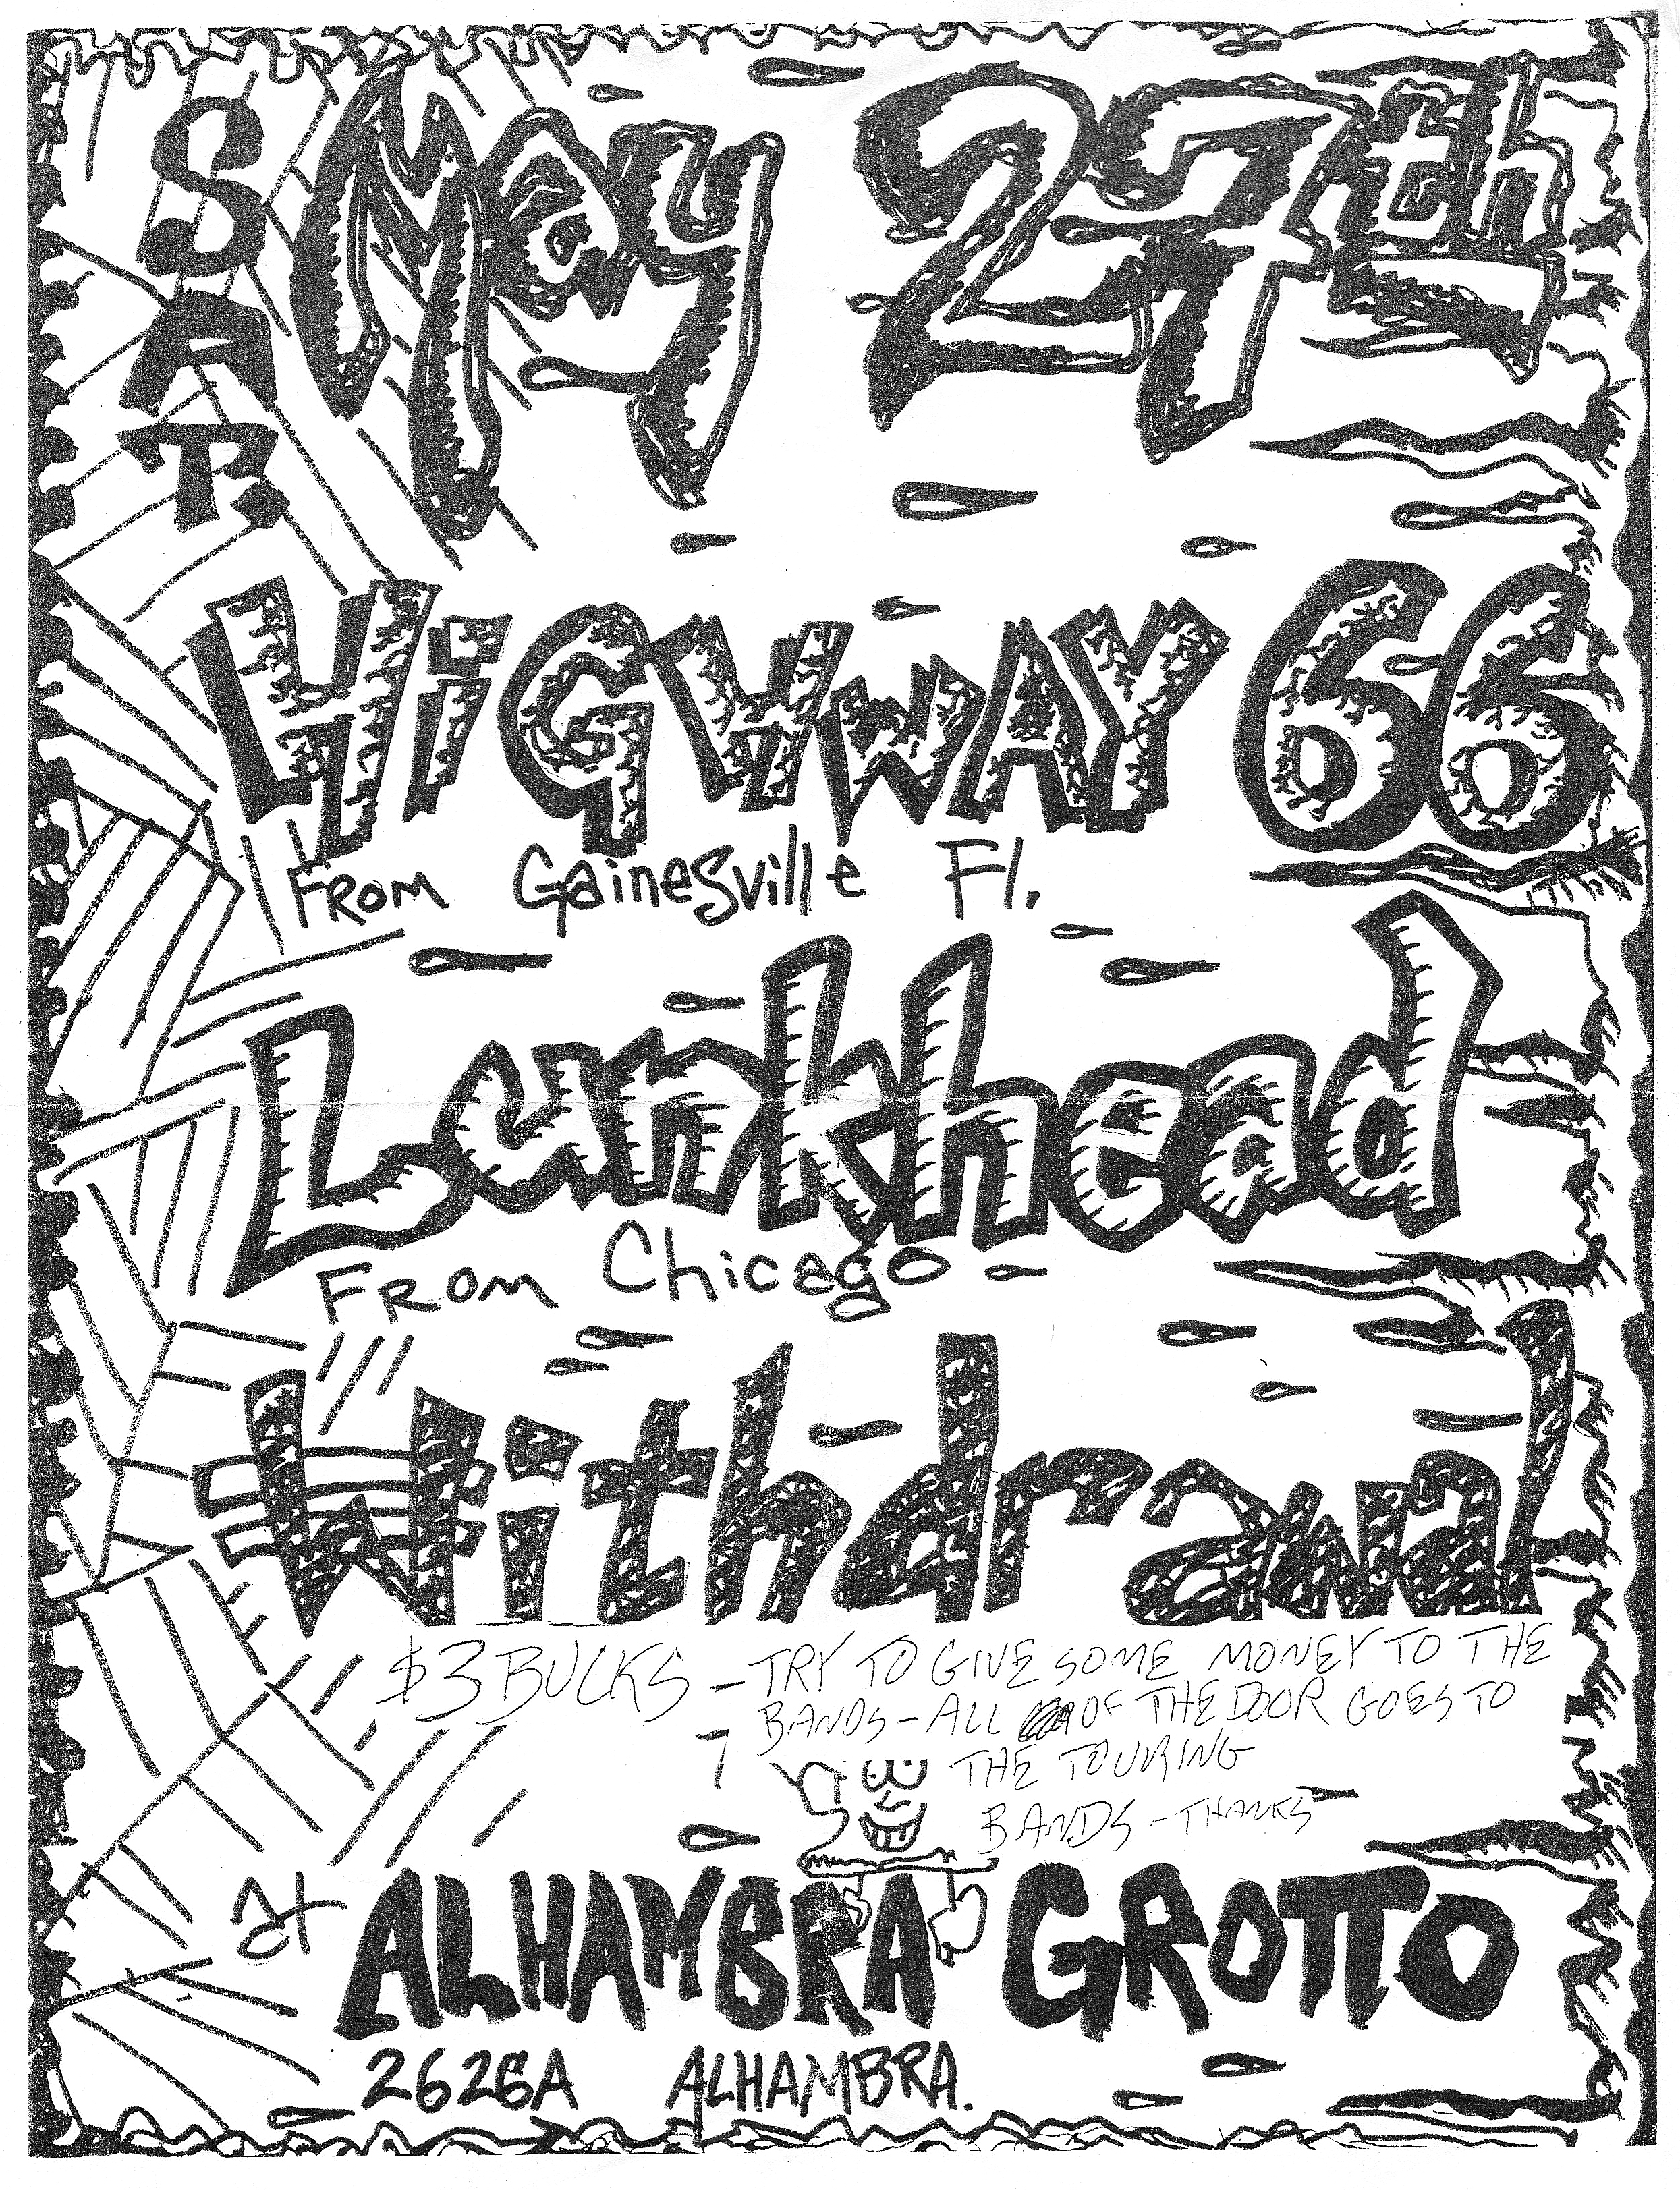 SAT.
May 27th
HiGHWAY 66
FROM Gainesville Fl.
Lunkhead
FROM Chicago
Withdrawal
$3 BUCKS - TRY TO GIVE SOME MONEY TO THE
BANDS - ALL OF THE DOOR GOES TO
THE TOURING
BANDS - THANKS
at ALHAMBRA GROTTO
2626A ALHAMBRA.